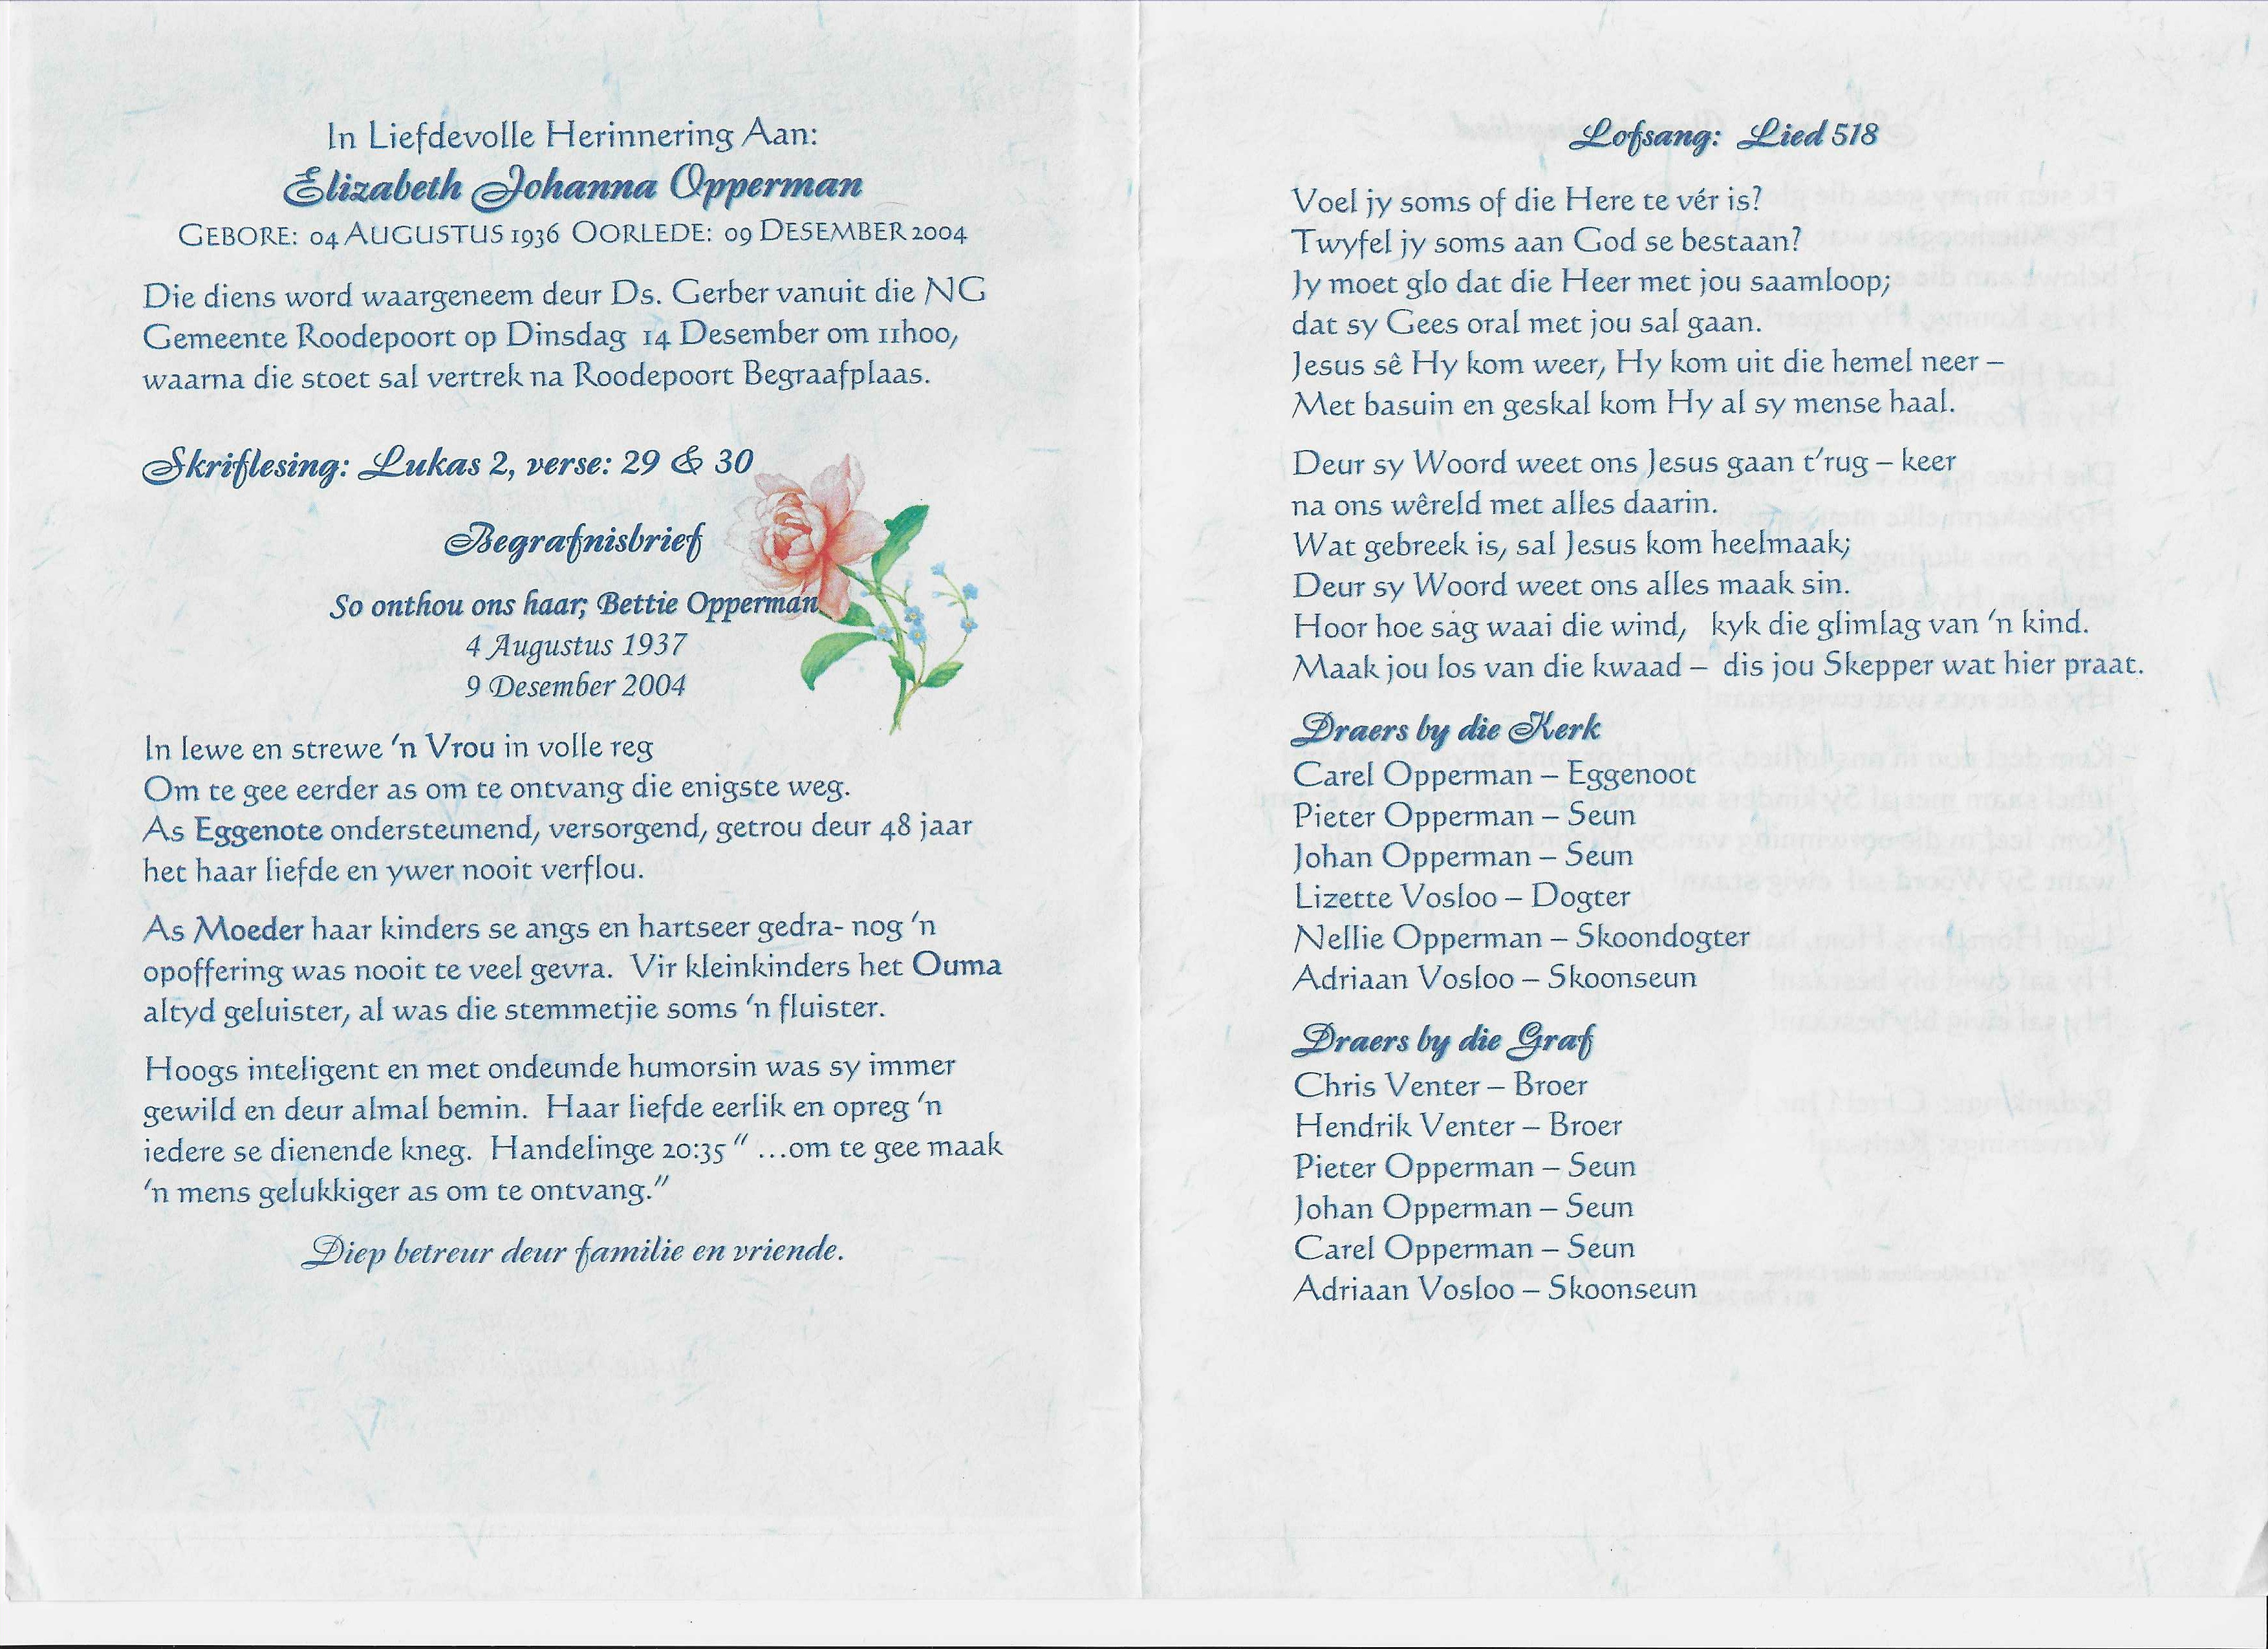 In Liefdevolle Herinnering Aan:
Elizabeth Johanna Opperman
GEBORE: 04 AUGUSTUS 1936 OORLEDE: 09 DESEMBER 2004
Die diens word waargeneem deur Ds. Gerber vanuit die NG
Gemeente Roodepoort op Dinsdag 14 Desember om 11h00,
waarna die stoet sal vertrek na Roodepoort Begraafplaas.
Skriflesing: Lukas 2, verse: 29 & 30
Begrafnisbrief
So onthou ons haar; Bettie Opperman
4 Augustus 1937
9 Desember 2004
In lewe en strewe 'n Vrou in volle reg
Om te gee eerder as om te ontvang die enigste weg.
As Eggenote ondersteunend, versorgend, getrou deur 48 jaar
het haar liefde en ywer nooit verflou.
As Moeder haar kinders se angs en hartseer gedra- nog 'n
opoffering was nooit te veel gevra. Vir kleinkinders het Ouma
altyd geluister, al was die stemmetjie soms 'n fluister.
Hoogs inteligent en met ondeunde humorsin was sy immer
gewild en deur almal bemin. Haar liefde eerlik en opreg 'n
iedere se dienende kneg. Handelinge 20:35 " ...om te gee maak
'n mens gelukkiger as om te ontvang."
Diep betreur deur familie en vriende.
Lofsang: Lied 518
Voel jy soms of die Here te vér is?
Twyfel jy soms aan God se bestaan?
Jy moet glo dat die Heer met jou saamloop;
dat sy Gees oral met jou sal gaan.
Jesus sê Hy kom weer, Hy kom uit die hemel neer –
Met basuin en geskal kom Hy al sy mense haal.
Deur sy Woord weet ons Jesus gaan t'rug – keer
na ons wêreld met alles daarin.
Wat gebreek is, sal Jesus kom heelmaak;
Deur sy Woord weet ons alles maak sin.
Hoor hoe sag waai die wind, kyk die glimlag van 'n kind.
Maak jou los van die kwaad – dis jou Skepper wat hier praat.
Draers by die Kerk
Carel Opperman – Eggenoot
Pieter Opperman – Seun
Johan Opperman – Seun
Lizette Vosloo – Dogter
Nellie Opperman – Skoondogter
Adriaan Vosloo – Skoonseun
Draers by die Graf
Chris Venter – Broer
Hendrik Venter – Broer
Pieter Opperman – Seun
Johan Opperman – Seun
Carel Opperman – Seun
Adriaan Vosloo – Skoonseun